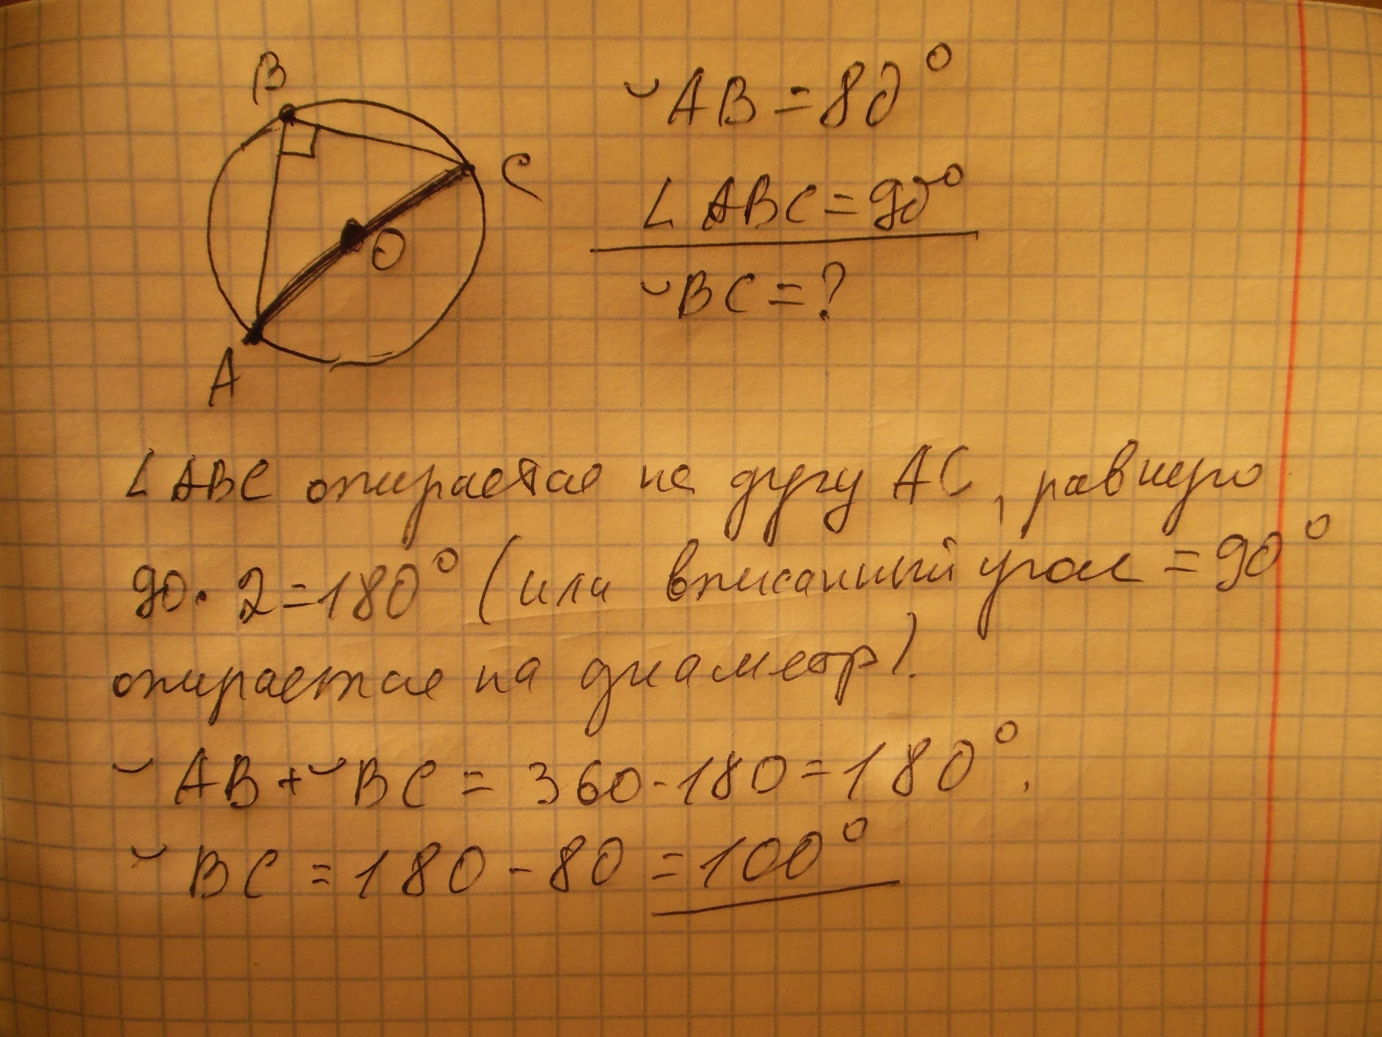 B
C
O
A
◡AB = 80°
∠ABC = 90°
◡BC = ?
∠ABC опирается на дугу AC, равную
90 · 2 = 180° (или вписанный угол = 90°
опирается на диаметр).
◡AB + ◡BC = 360 - 180 = 180°.
◡BC = 180 - 80 = 100°